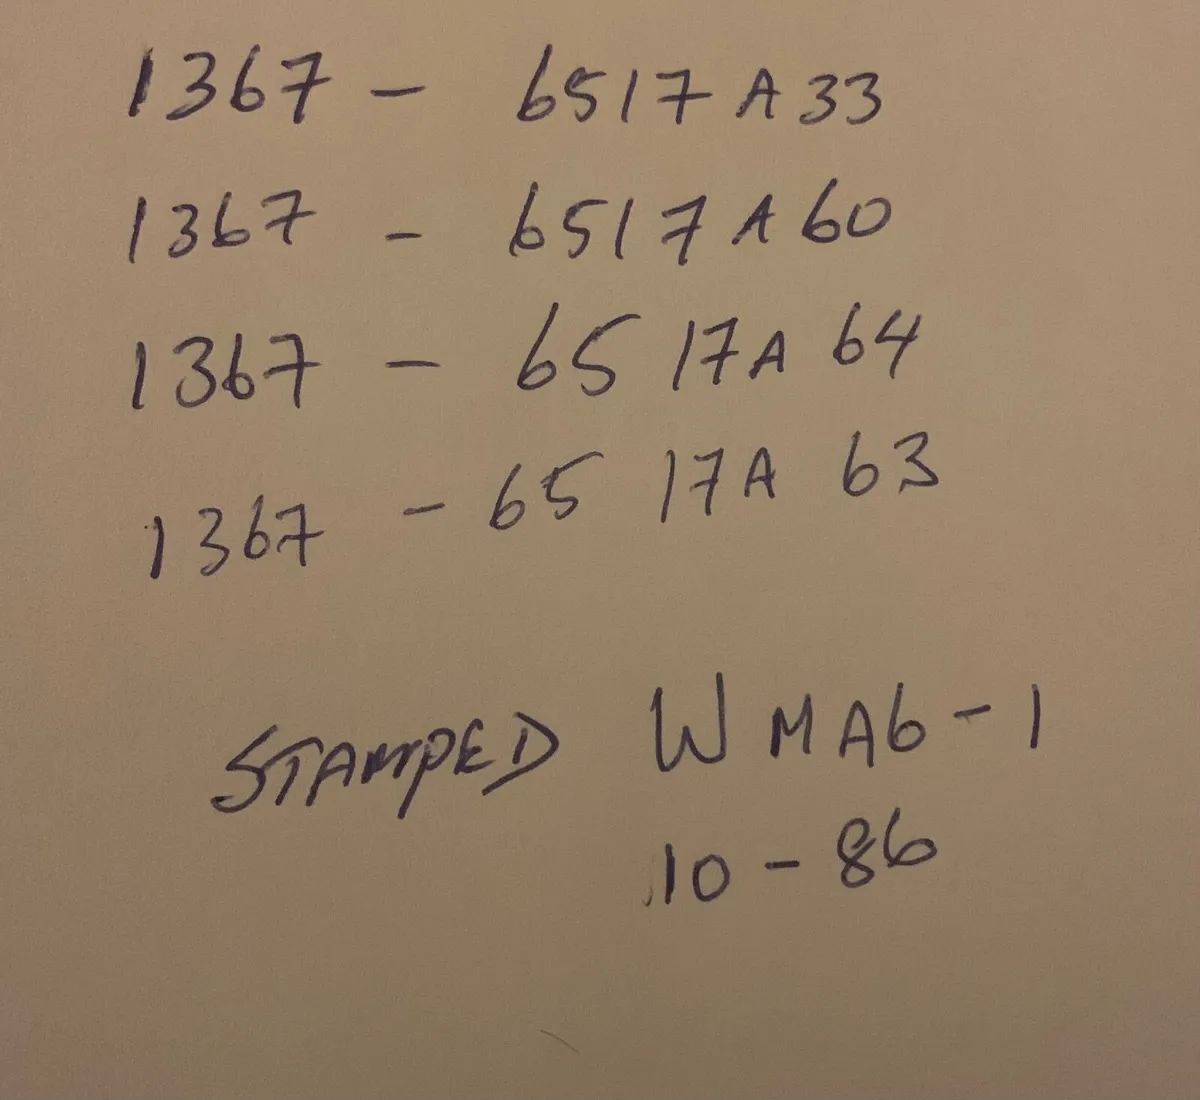 1367 - 6517 A 33
1367 - 6517 A 60
1367 - 65 17A 64
1367 - 65 17A 63
STAMPED W MA6-1
10-86